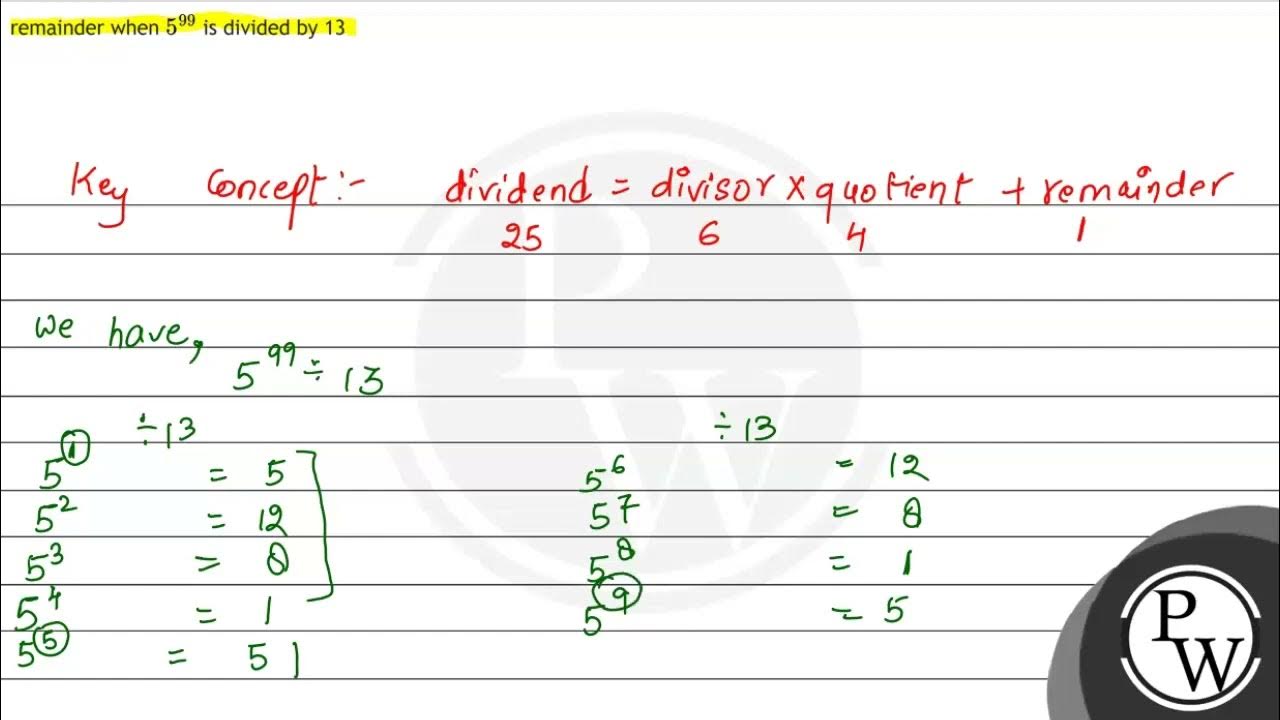 remainder when 5^99 is divided by 13
Key Concept :- dividend = divisor × quotient + remainder
25 6 4 1
We have,
5^99 ÷ 13
÷ 13
5^1 = 5
5^2 = 12
5^3 = 8
5^4 = 1
5^5 = 5
÷ 13
5^6 = 12
5^7 = 8
5^8 = 1
5^9 = 5
PW
PW